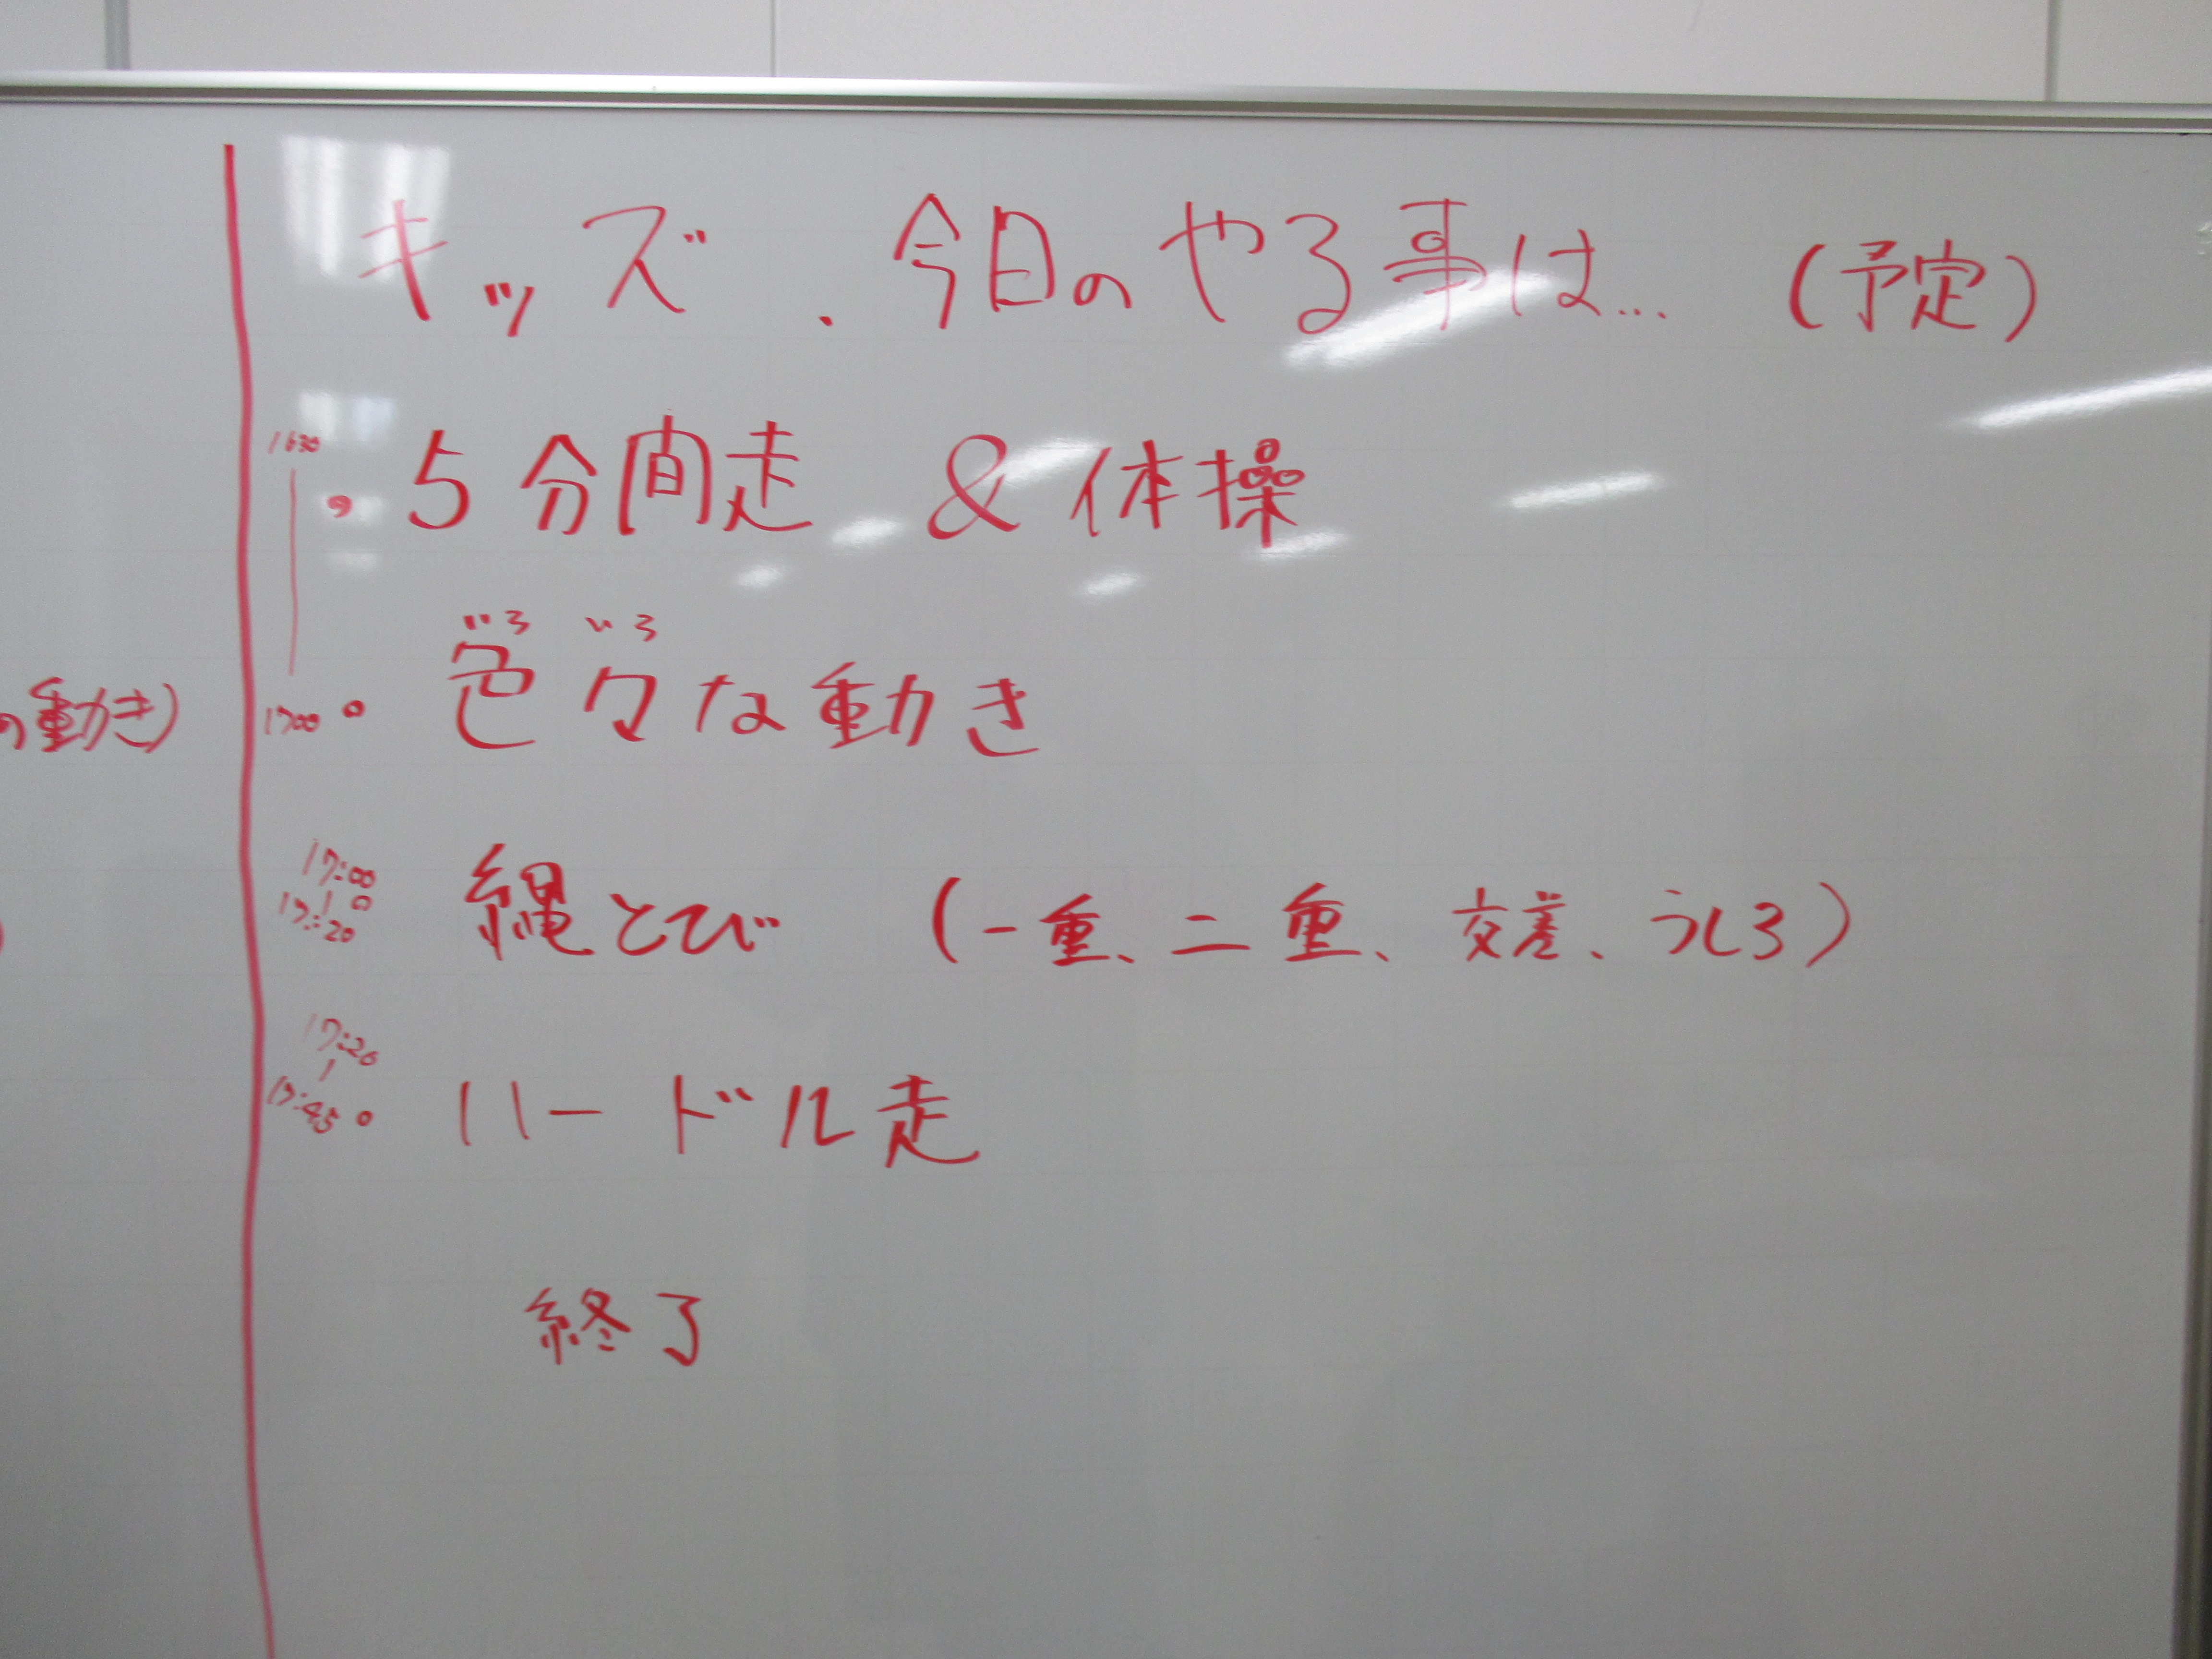 キッズ．今日のやる事は…（予定）
1630
・5分間走 & 体操
いろ いろ
1700 ○ 色々な動き
の動き）
17:00
17:20 ○ 縄とび （一重、二重、交差、うしろ）
17:20
17:45 ○ ハードル走
終了